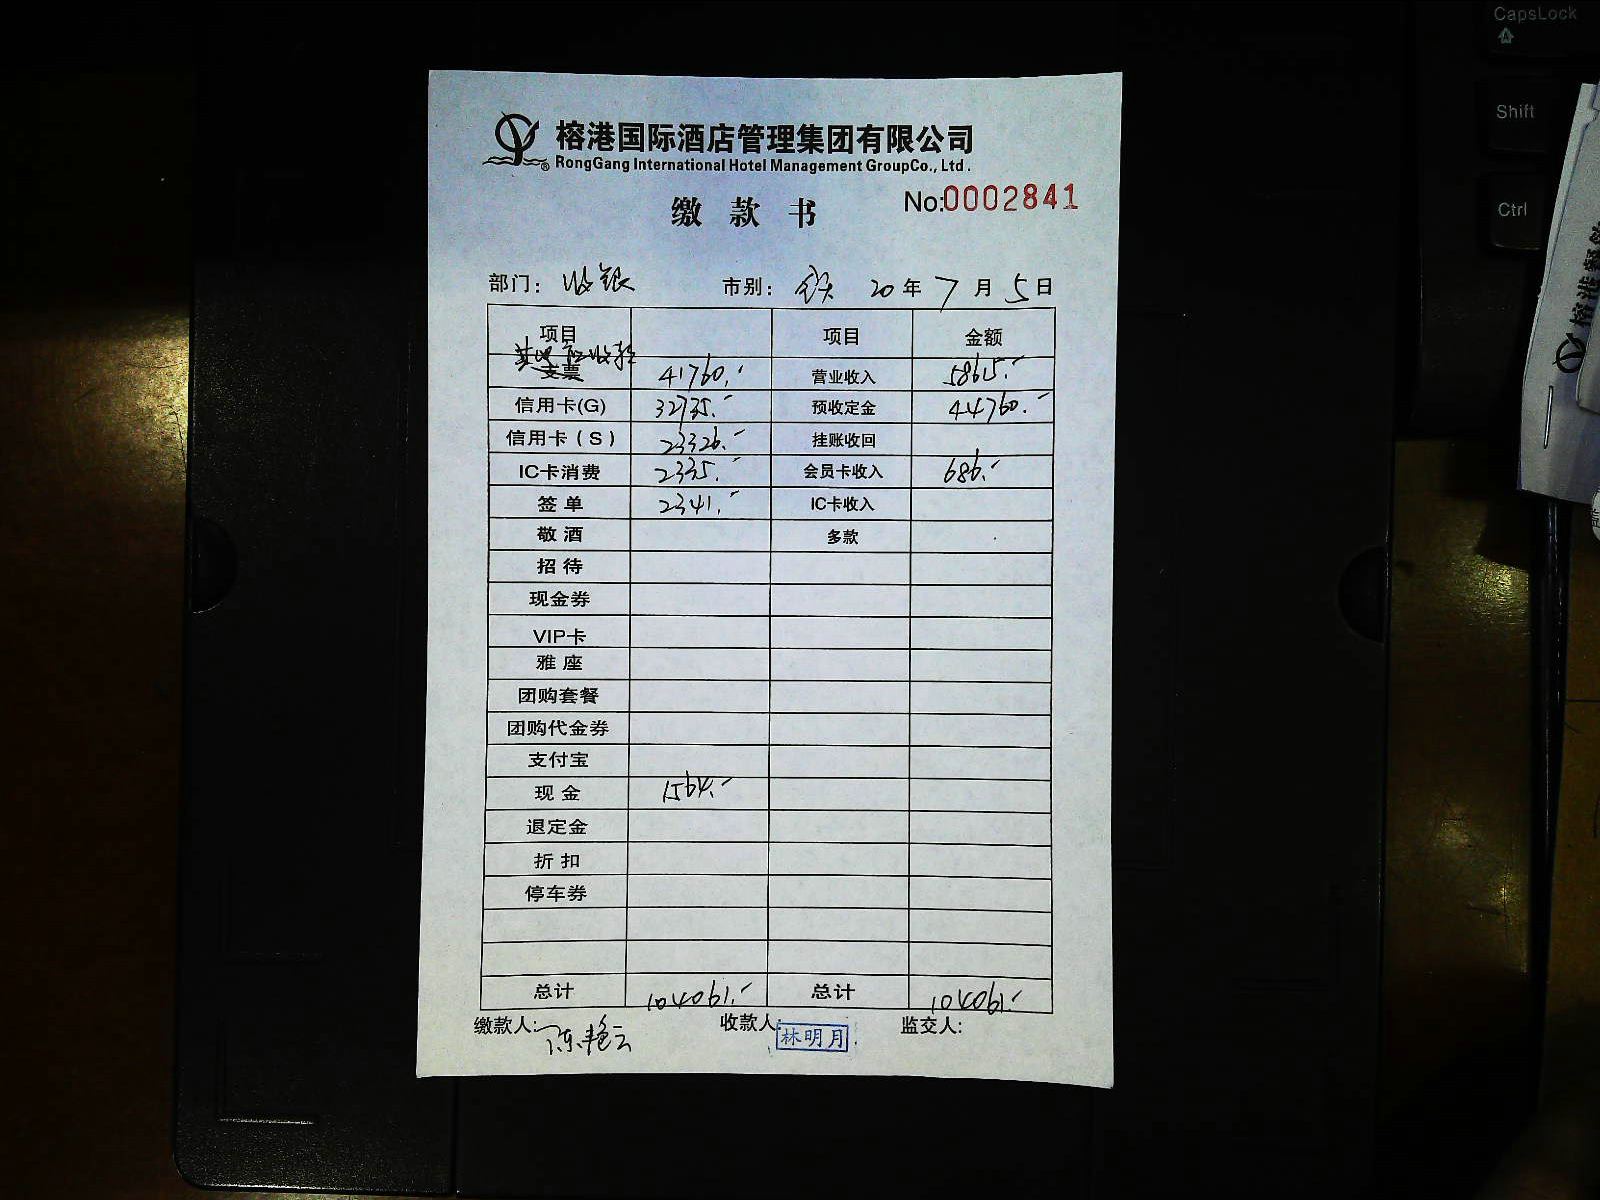 CapsLock
Shift
Ctrl
榕港国际酒店管理集团有限公司
RongGang International Hotel Management GroupCo., Ltd.
缴款书 No:0002841
部门: 收银 市别: 全天 20年7月5日
项目 项目 金额
其他应收款
支票 41760.- 营业收入 58615.-
信用卡(G) 32735.- 预收定金 44760.-
信用卡(S) 23326.- 挂账收回
IC卡消费 2335.- 会员卡收入 686.-
签单 2341.- IC卡收入
敬酒 多款
招待
现金券
VIP卡
雅座
团购套餐
团购代金券
支付宝
现金 1564.-
退定金
折扣
停车券
总计 104061.- 总计 104061.-
缴款人: 陈艳云 收款人: 林明月 监交人: